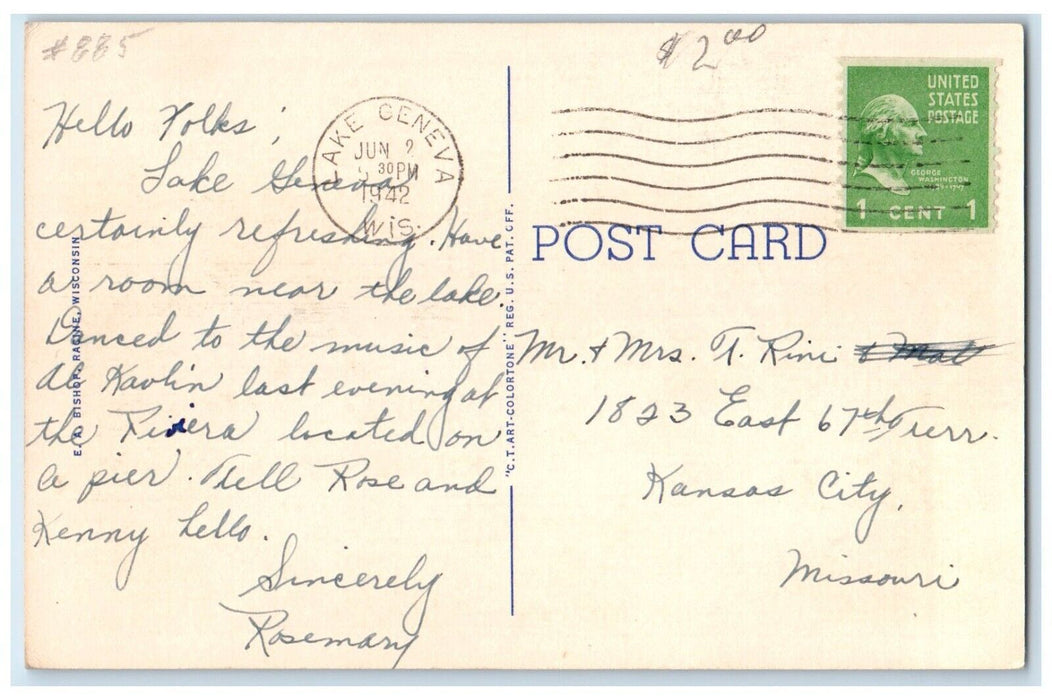 #885
$2.00
Hello Folks;
Lake Geneva
certainly refreshing. Have
a room near the lake.
Danced to the music of
Al Kavlin last evening at
the Riviera located on
a pier. Tell Rose and
Kenny hello.
Sincerely
Rosemary
LAKE GENEVA
JUN 2
30 PM
1942
WIS.
E. A. BISHOP, RACINE, WISCONSIN
"C. T. ART-COLORTONE" REG. U.S. PAT. OFF.
UNITED
STATES
POSTAGE
GEORGE
WASHINGTON
1 CENT 1
POST CARD
Mr. & Mrs. T. Rini
1823 East 67th Terr.
Kansas City,
Missouri